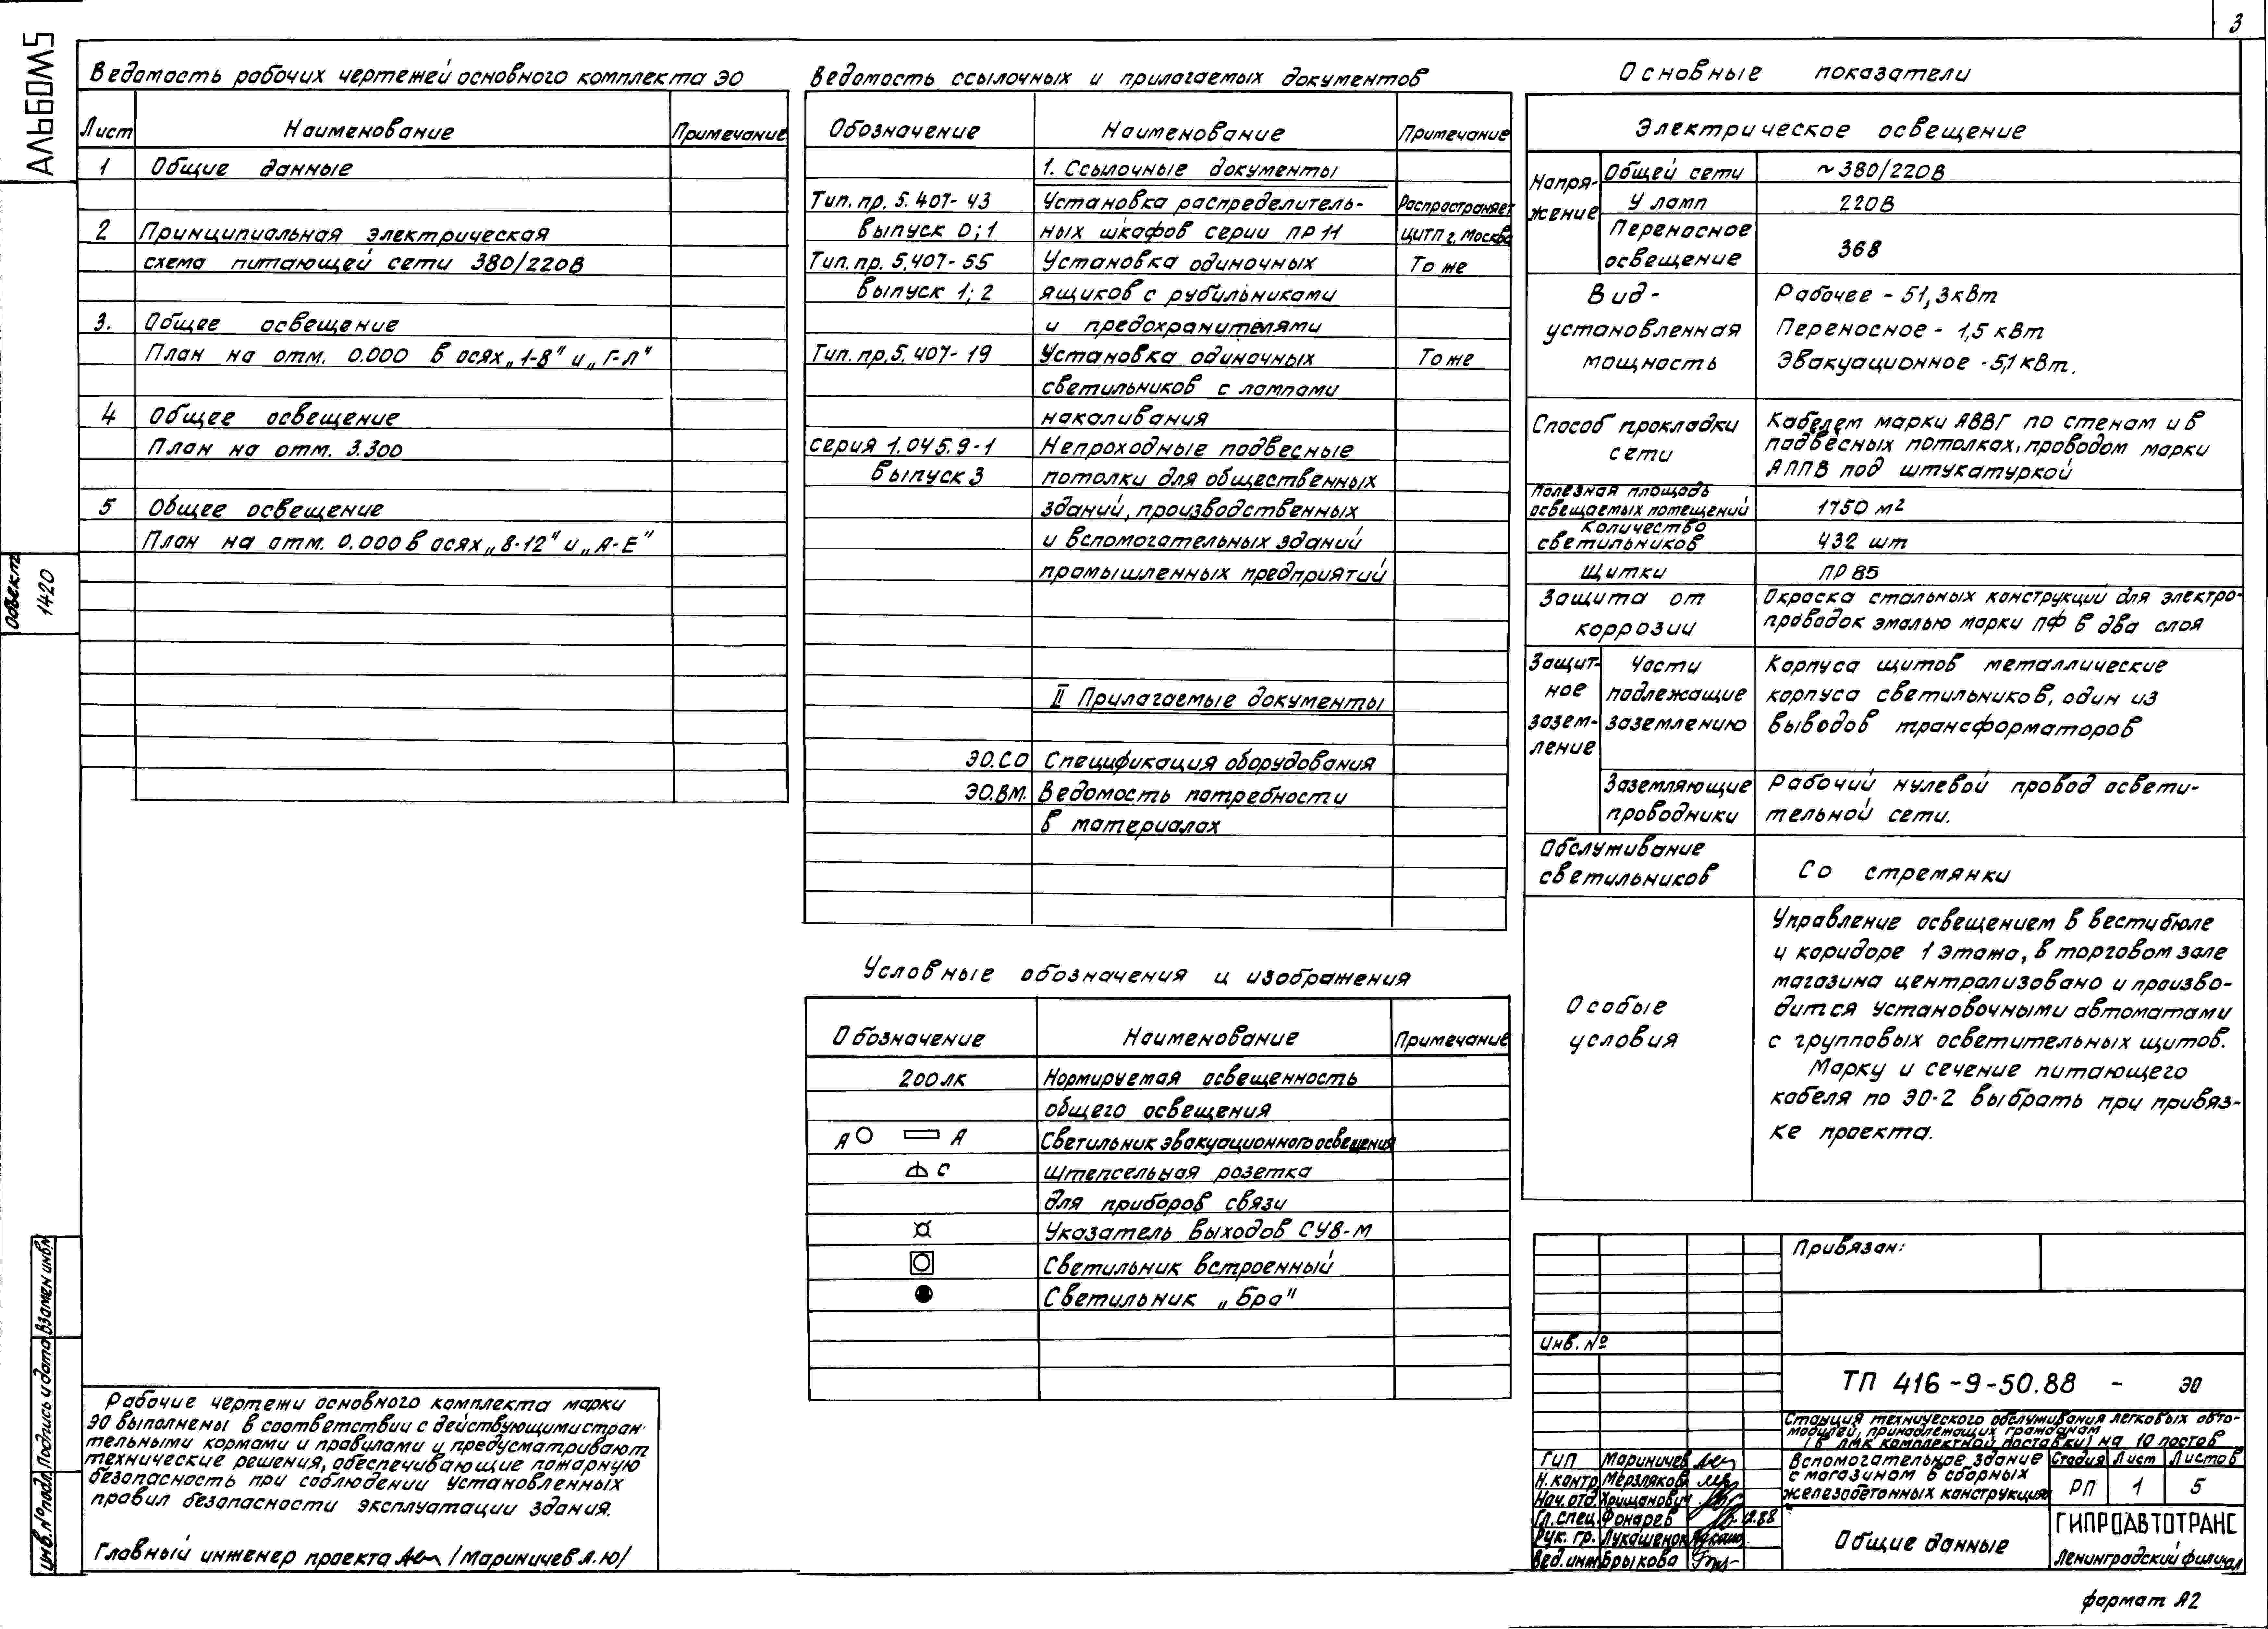 3
АЛЬБОМ 5
Объект
1420
Ведомость рабочих чертежей основного комплекта ЭО
Лист Наименование Примечание
1 Общие данные
2 Принципиальная электрическая
схема питающей сети 380/220В
3. Общее освещение
План на отм. 0.000 в осях „1-8" и „Г-Л"
4 Общее освещение
План на отм. 3.300
5 Общее освещение
План на отм. 0.000 в осях „8-12" и „А-Е"
Ведомость ссылочных и прилагаемых документов
Обозначение Наименование Примечание
1. Ссылочные документы
Тип. пр. 5.407-43 Установка распределитель- Распространяет
выпуск 0; 1 ных шкафов серии ПР 11 ЦИТП г. Москва
Тип. пр. 5.407-55 Установка одиночных То же
выпуск 1; 2 ящиков с рубильниками
и предохранителями
Тип. пр. 5.407-19 Установка одиночных То же
светильников с лампами
накаливания
серия 1.045.9-1 Непроходные подвесные
выпуск 3 потолки для общественных
зданий, производственных
и вспомогательных зданий
промышленных предприятий
II Прилагаемые документы
ЭО.СО Спецификация оборудования
ЭО.ВМ. Ведомость потребности
в материалах
Условные обозначения и изображения
Обозначение Наименование Примечание
200лк Нормируемая освещенность
общего освещения
А А Светильник эвакуационного освещения
С Штепсельная розетка
для приборов связи
Указатель выходов СУВ-М
Светильник встроенный
Светильник „Бра"
Основные показатели
Электрическое освещение
Напря-
жение
Общей сети ~380/220В
У ламп 220В
Переносное
освещение
36В
Вид-
установленная
мощность
Рабочее - 51,3кВт
Переносное - 1,5 кВт
Эвакуационное - 5,1 кВт.
Способ прокладки
сети
Кабелем марки АВВГ по стенам и в
подвесных потолках, проводом марки
АППВ под штукатуркой
Полезная площадь
освещаемых помещений 1750 м²
Количество
светильников 432 шт
Щитки ПР 85
Защита от
коррозии
Окраска стальных конструкций для электро-
проводок эмалью марки ПФ в два слоя
Защит-
ное
зазем-
ление
Части
подлежащие
заземлению
Корпуса щитов металлические
корпуса светильников, один из
выводов трансформаторов
Заземляющие
проводники
Рабочий нулевой провод освети-
тельной сети.
Обслуживание
светильников
Со стремянки
Особые
условия
Управление освещением в вестибюле
и коридоре 1 этажа, в торговом зале
магазина централизовано и произво-
дится установочными автоматами
с групповых осветительных щитов.
Марку и сечение питающего
кабеля по ЭО-2 выбрать при привяз-
ке проекта.
Рабочие чертежи основного комплекта марки
ЭО выполнены в соответствии с действующими стро-
ительными нормами и правилами и предусматривают
технические решения, обеспечивающие пожарную
безопасность при соблюдении установленных
правил безопасности эксплуатации здания.
Главный инженер проекта /Мариничев А.Ю/
Взамен инв.№
Подпись и дата
Инв.№ подл.
Привязан:
Инв.№
ТП 416-9-50.88 - ЭО
Станция технического обслуживания легковых авто-
мобилей, принадлежащих гражданам
(в ЛМК комплектной поставки) на 10 постов
ГИП Мариничев
Н.контр Мерзлякова
Нач.отд. Хрищанович
Гл.спец. Фонарев
Рук. гр. Лукашенок
Вед.инж Брыкова
Вспомогательное здание
с магазином в сборных
железобетонных конструкциях
Стадия Лист Листов
РП 1 5
Общие данные
ГИПРОАВТОТРАНС
Ленинградский филиал
формат А2